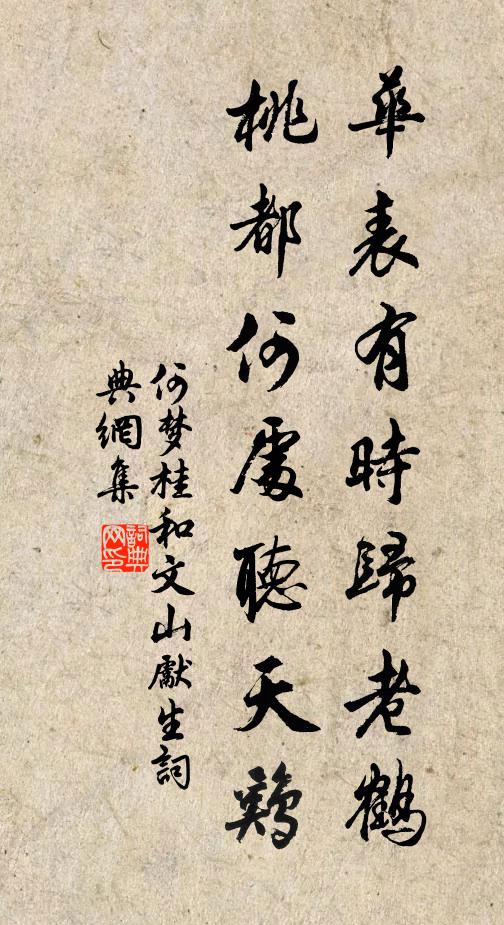 華表有時歸老鶴
桃都何處聽天鷄
何梦桂和文山獻生詞
典網集
詞典
网印